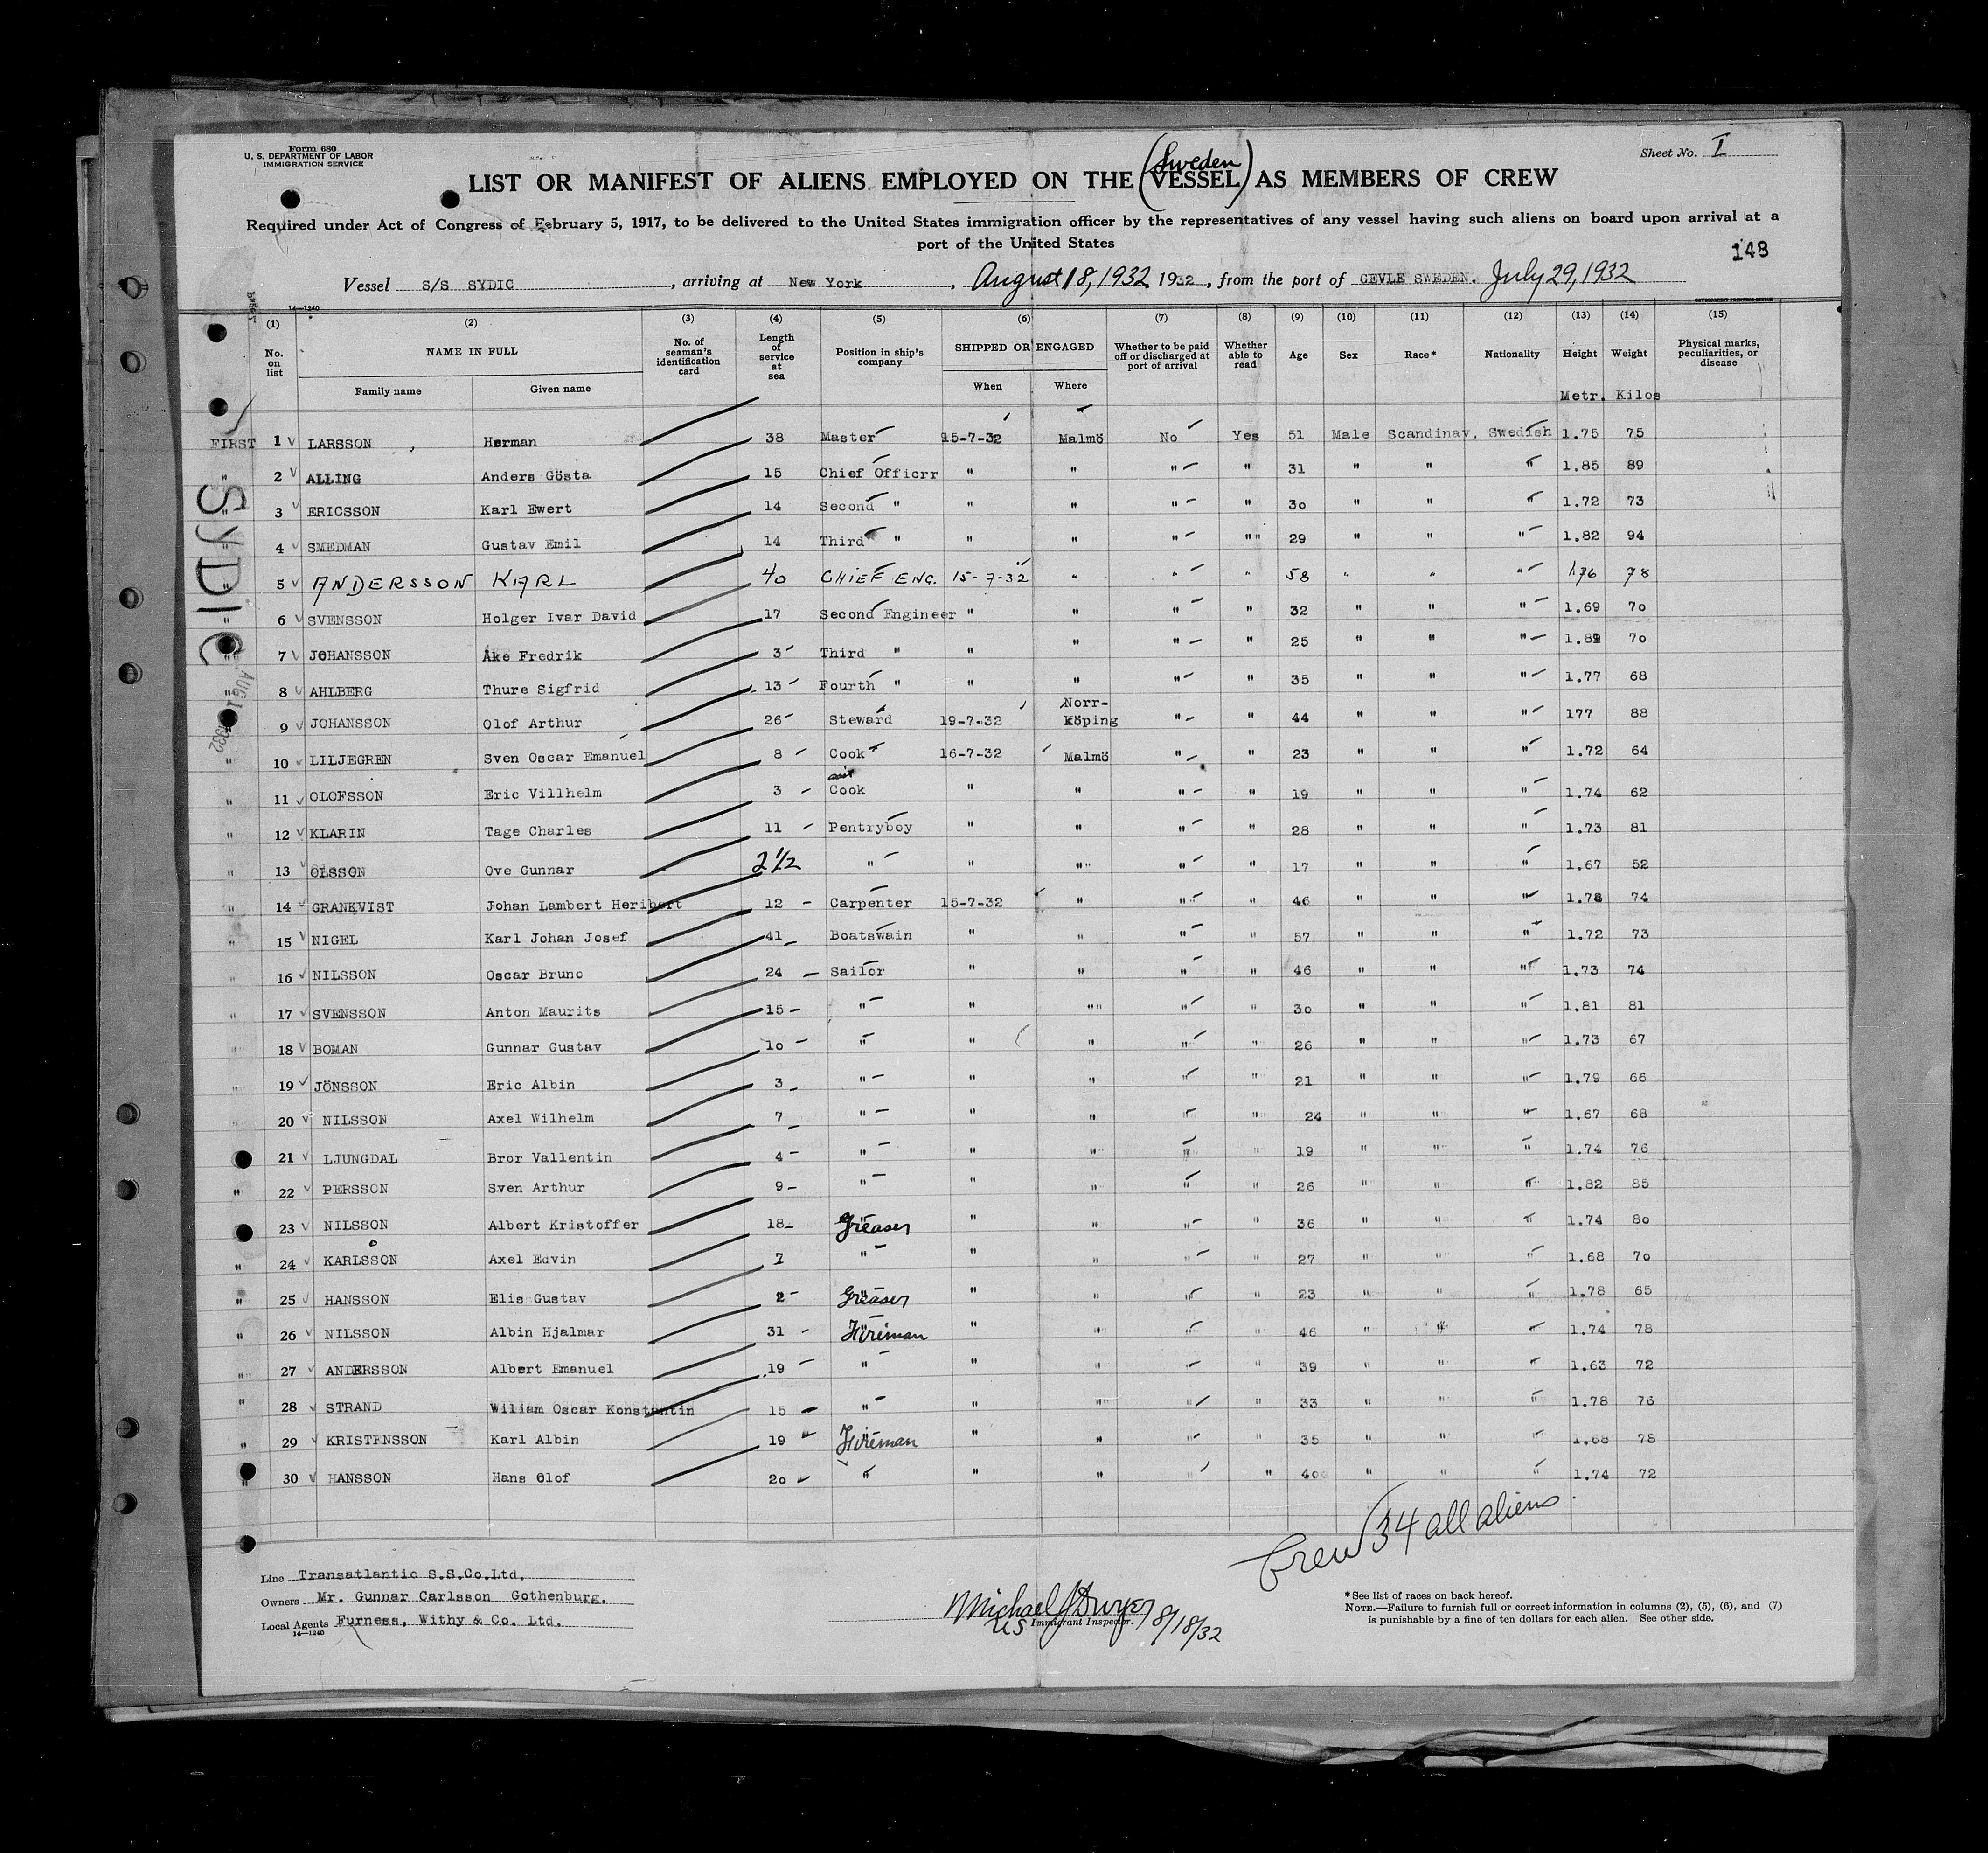 Form 680
U. S. DEPARTMENT OF LABOR
IMMIGRATION SERVICE
Sheet No. I
(Sweden)
LIST OR MANIFEST OF ALIENS EMPLOYED ON THE VESSEL AS MEMBERS OF CREW
Required under Act of Congress of February 5, 1917, to be delivered to the United States immigration officer by the representatives of any vessel having such aliens on board upon arrival at a
port of the United States
148
Vessel S/S SYDIC, arriving at New York, August 18, 1932 1932, from the port of GEVLE SWEDEN. July 29, 1932
14—1240
(1) (2) (3) (4) (5) (6) (7) (8) (9) (10) (11) (12) (13) (14) (15)
No. on list NAME IN FULL Family name Given name No. of seaman's identification card Length of service at sea Position in ship's company SHIPPED OR ENGAGED When Where Whether to be paid off or discharged at port of arrival Whether able to read Age Sex Race* Nationality Height Weight Physical marks, peculiarities, or disease
Metr. Kilos
FIRST 1 LARSSON, Herman 38 Master 15-7-32 Malmö No Yes 51 Male Scandinav. Swedish 1.75 75
" 2 ALLING Anders Gösta 15 Chief Officrr " " " " 31 " " " 1.85 89
" 3 ERICSSON Karl Ewert 14 Second " " " " " 30 " " " 1.72 73
" 4 SMEDMAN Gustav Emil 14 Third " " " " "" 29 " " " 1.82 94
5 ANDERSSON KARL 40 CHIEF ENG. 15-7-32 " " " 58 " " " 1.76 78
" 6 SVENSSON Holger Ivar David 17 Second Engineer " " " " 32 " " " 1.69 70
" 7 JOHANSSON Åke Fredrik 3 Third " " " " " 25 " " " 1.82 70
" 8 AHLBERG Thure Sigfrid 13 Fourth " " " " " 35 " " " 1.77 68
" 9 JOHANSSON Olof Arthur 26 Steward 19-7-32 Norr-köping " " 44 " " " 177 88
" 10 LILJEGREN Sven Oscar Emanuel 8 Cook 16-7-32 Malmö " " 23 " " " 1.72 64
" 11 OLOFSSON Eric Villhelm 3 asst Cook " " " " 19 " " " 1.74 62
" 12 KLARIN Tage Charles 11 Pentryboy " " " " 28 " " " 1.73 81
" 13 OLSSON Ove Gunnar 2 1/2 " " "" " " 17 " " " 1.67 52
" 14 GRANKVIST Johan Lambert Heribert 12 Carpenter 15-7-32 " " " 46 " " " 1.78 74
" 15 NIGEL Karl Johan Josef 41 Boatswain " " " " 57 " " " 1.72 73
" 16 NILSSON Oscar Bruno 24 Sailor " " " " 46 " " " 1.73 74
" 17 SVENSSON Anton Maurits 15 " " "" " " 30 " " " 1.81 81
" 18 BOMAN Gunnar Gustav 10 " " " " " 26 " " " 1.73 67
" 19 JÖNSSON Eric Albin 3 " " " " " 21 " " " 1.79 66
" 20 NILSSON Axel Wilhelm 7 " " " " " 24 " " " 1.67 68
21 LJUNGDAL Bror Vallentin 4 " " " " " 19 " " " 1.74 76
" 22 PERSSON Sven Arthur 9 " " " " " 26 " " " 1.82 85
23 NILSSON Albert Kristoffer 18 Greaser " " " " 36 " " " 1.74 80
" 24 KARLSSON Axel Edvin 7 " " " " " 27 " " " 1.68 70
" 25 HANSSON Elis Gustav 2 Greaser " " " " 23 " " " 1.78 65
" 26 NILSSON Albin Hjalmar 31 Fireman " " " " 46 " " " 1.74 78
" 27 ANDERSSON Albert Emanuel 19 " " " " " 39 " " " 1.63 72
" 28 STRAND Wiliam Oscar Konstantin 15 " " " " " 33 " " " 1.78 76
" 29 KRISTENSSON Karl Albin 19 Fireman " " " " 35 " " " 1.68 78
" 30 HANSSON Hans Olof 20 " " " " " 40 " " " 1.74 72
SYDIC
Crew 34 all aliens.
Line Transatlantic S.S.Co.Ltd.
Owners Mr. Gunnar Carlsson Gothenburg.
Local Agents Furness, Withy & Co. Ltd.
14—1240
Michael J Dwyer 8/18/32
US Immigrant Inspector.
*See list of races on back hereof.
NOTE.—Failure to furnish full or correct information in columns (2), (5), (6), and (7)
is punishable by a fine of ten dollars for each alien. See other side.